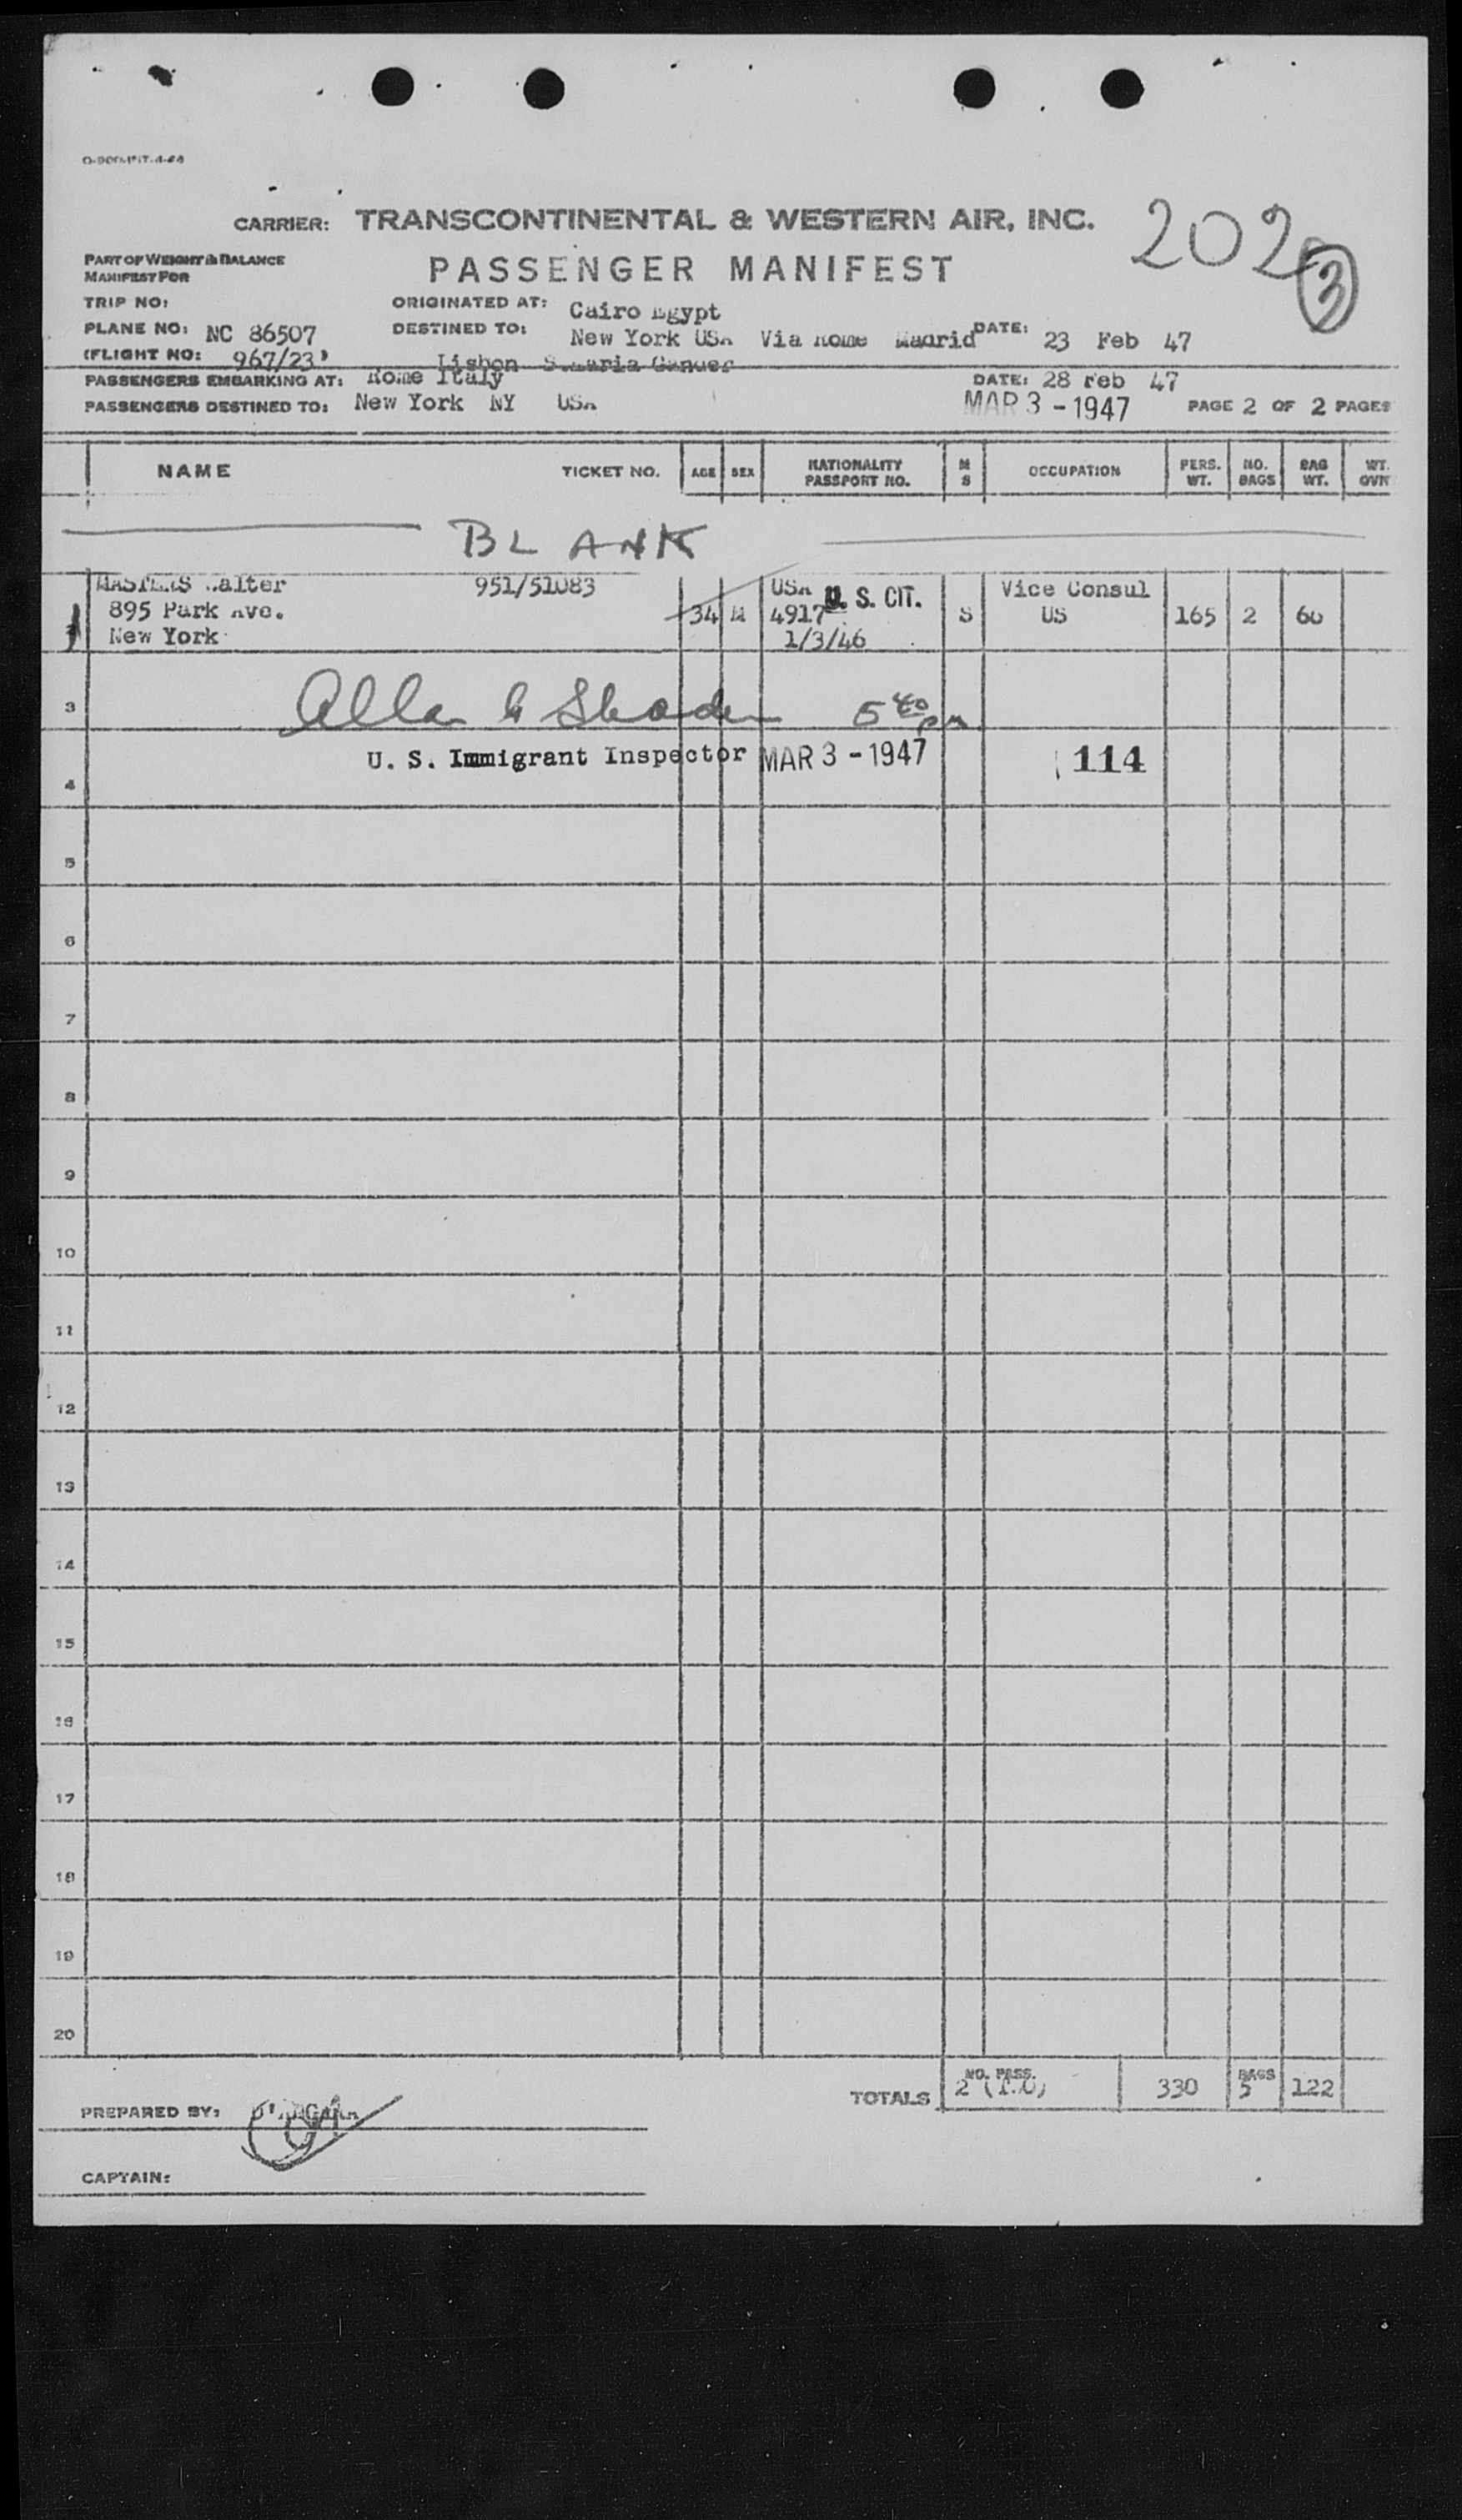 CARRIER: TRANSCONTINENTAL & WESTERN AIR, INC. 202
PART OF WEIGHT & BALANCE
MANIFEST FOR
PASSENGER MANIFEST
3
TRIP NO:
ORIGINATED AT: Cairo Egypt
PLANE NO: NC 86507
DESTINED TO: New York USA Via Rome Madrid DATE: 23 Feb 47
(FLIGHT NO: 967/23)
Lisbon S.Maria Gander
PASSENGERS EMBARKING AT: Rome Italy DATE: 28 Feb 47
PASSENGERS DESTINED TO: New York NY USA MAR 3 - 1947 PAGE 2 OF 2 PAGES
NAME TICKET NO. AGE SEX NATIONALITY PASSPORT NO. M S OCCUPATION PERS. WT. NO. BAGS BAG WT. WT. OVR
BLANK
MASTERS Walter 951/51083 USA U. S. CIT. Vice Consul
895 Park Ave. 34 M 4917 S US 165 2 60
New York 1/3/46
3 5 40 pm
U. S. Immigrant Inspector MAR 3 - 1947 114
4
5
6
7
8
9
10
11
12
13
14
15
16
17
18
19
20
TOTALS NO. PASS. 2 330 BAGS 5 122
PREPARED BY:
CAPTAIN: